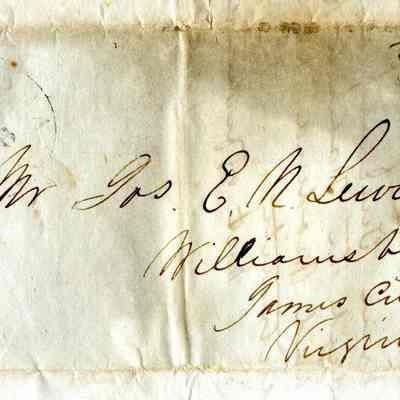 Mr Jos. E. N. Lewi
Williamsb
James Ci
Virgin